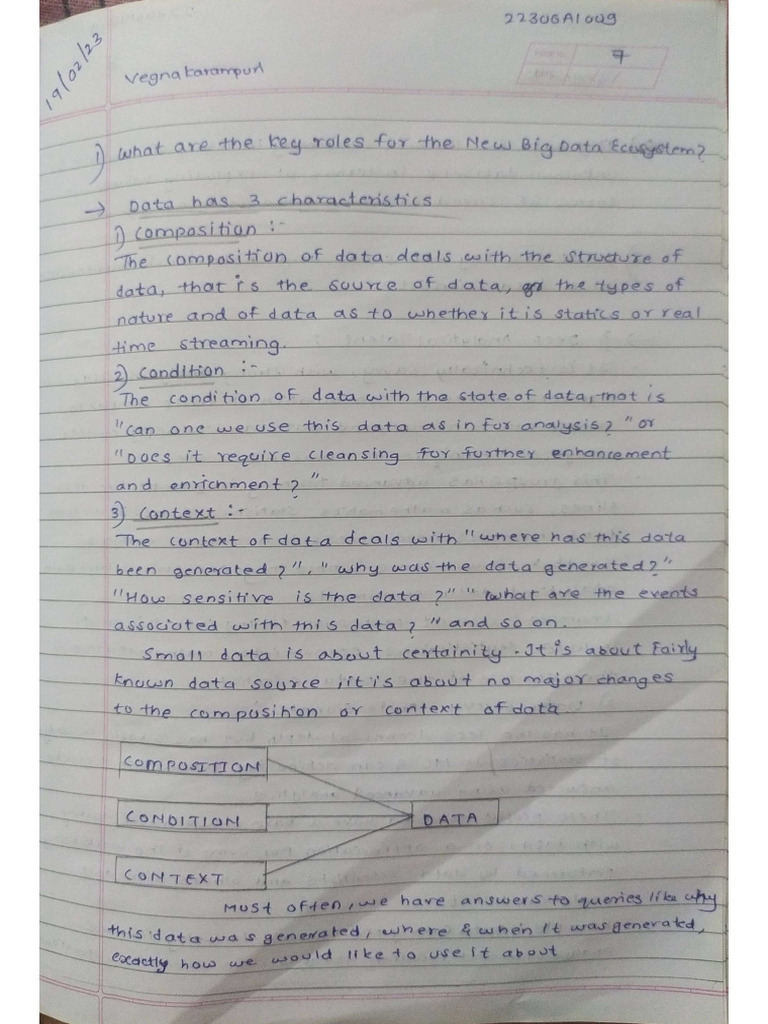 22306A1009
19/02/23
7
Vegnakarampuri
1) What are the key roles for the New Big Data Ecosystem?
→ Data has 3 characteristics
1) Composition :-
The composition of data deals with the structure of
data, that is the source of data, the types of
nature and of data as to whether it is statics or real
time streaming.
2) Condition :-
The condition of data with the state of data, that is
"can one we use this data as in for analysis?" or
"Does it require cleansing for further enhancement
and enrichment?"
3) Context :-
The context of data deals with "where has this data
been generated?", "why was the data generated?"
"How sensitive is the data?" "what are the events
associated with this data?" and so on.
Small data is about certainity. It is about fairly
known data source, it is about no major changes
to the composition or context of data.
COMPOSITION
CONDITION
DATA
CONTEXT
Most often, we have answers to queries like why
this data was generated, where & when it was generated,
exactly how we would like to use it about